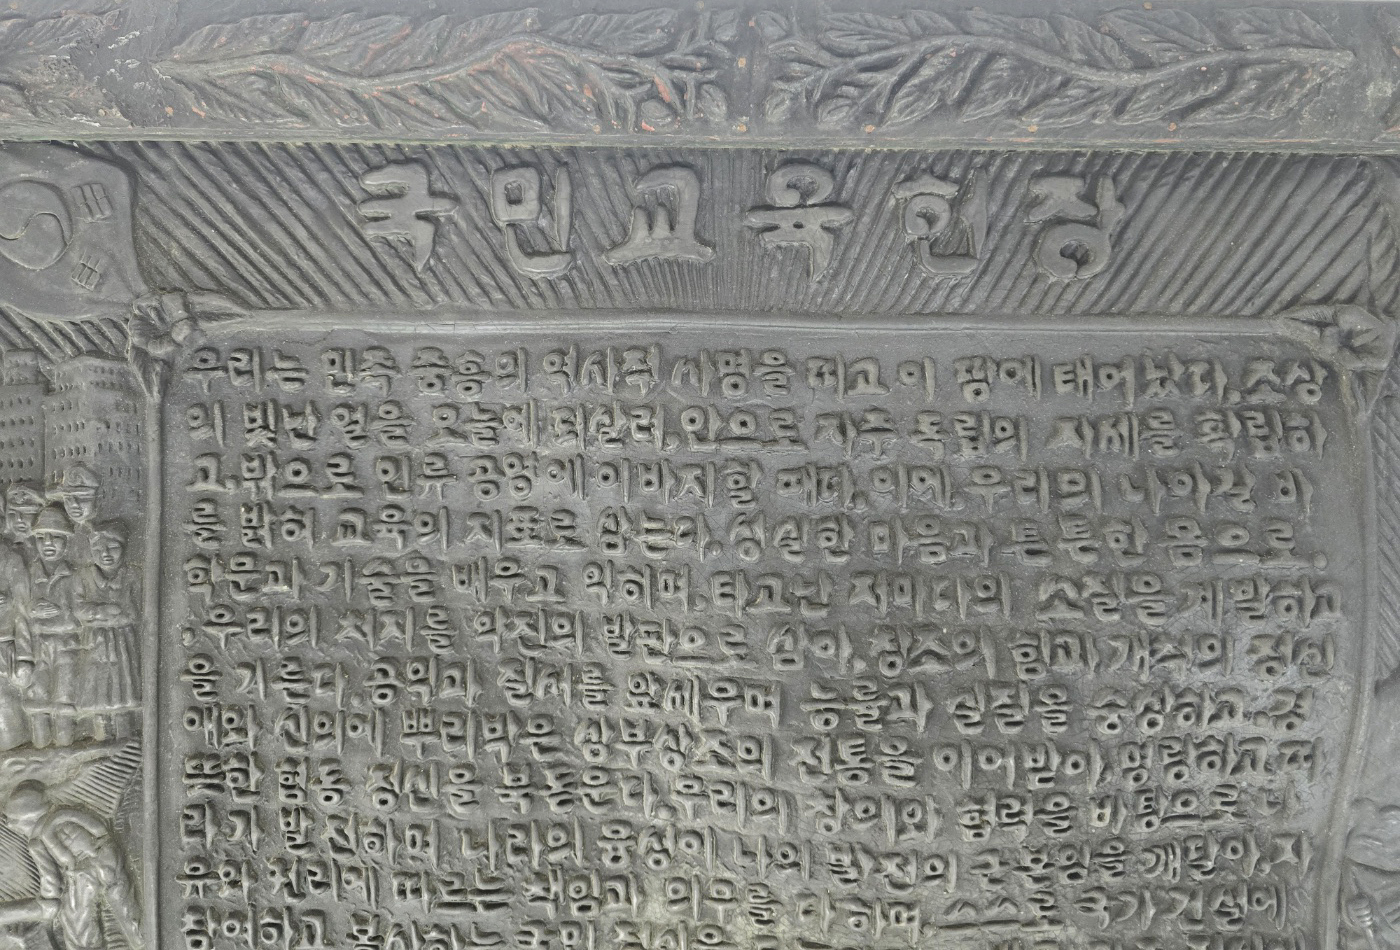 국민교육헌장
우리는 민족 중흥의 역사적 사명을 띠고 이 땅에 태어났다. 조상
의 빛난 얼을 오늘에 되살려, 안으로 자주 독립의 자세를 확립하
고, 밖으로 인류 공영에 이바지할 때다. 이에, 우리의 나아갈 바
를 밝혀 교육의 지표로 삼는다. 성실한 마음과 튼튼한 몸으로,
학문과 기술을 배우고 익히며, 타고난 저마다의 소질을 계발하고
, 우리의 처지를 약진의 발판으로 삼아, 창조의 힘과 개척의 정신
을 기른다. 공익과 질서를 앞세우며 능률과 실질을 숭상하고, 경
애와 신의에 뿌리박은 상부상조의 전통을 이어받아, 명랑하고 따
뜻한 협동 정신을 북돋운다. 우리의 창의와 협력을 바탕으로 나
라가 발전하며, 나라의 융성이 나의 발전의 근본임을 깨달아, 자
유와 권리에 따르는 책임과 의무를 다하며, 스스로 국가 건설에
참여하고 봉사하는 국민 정신을